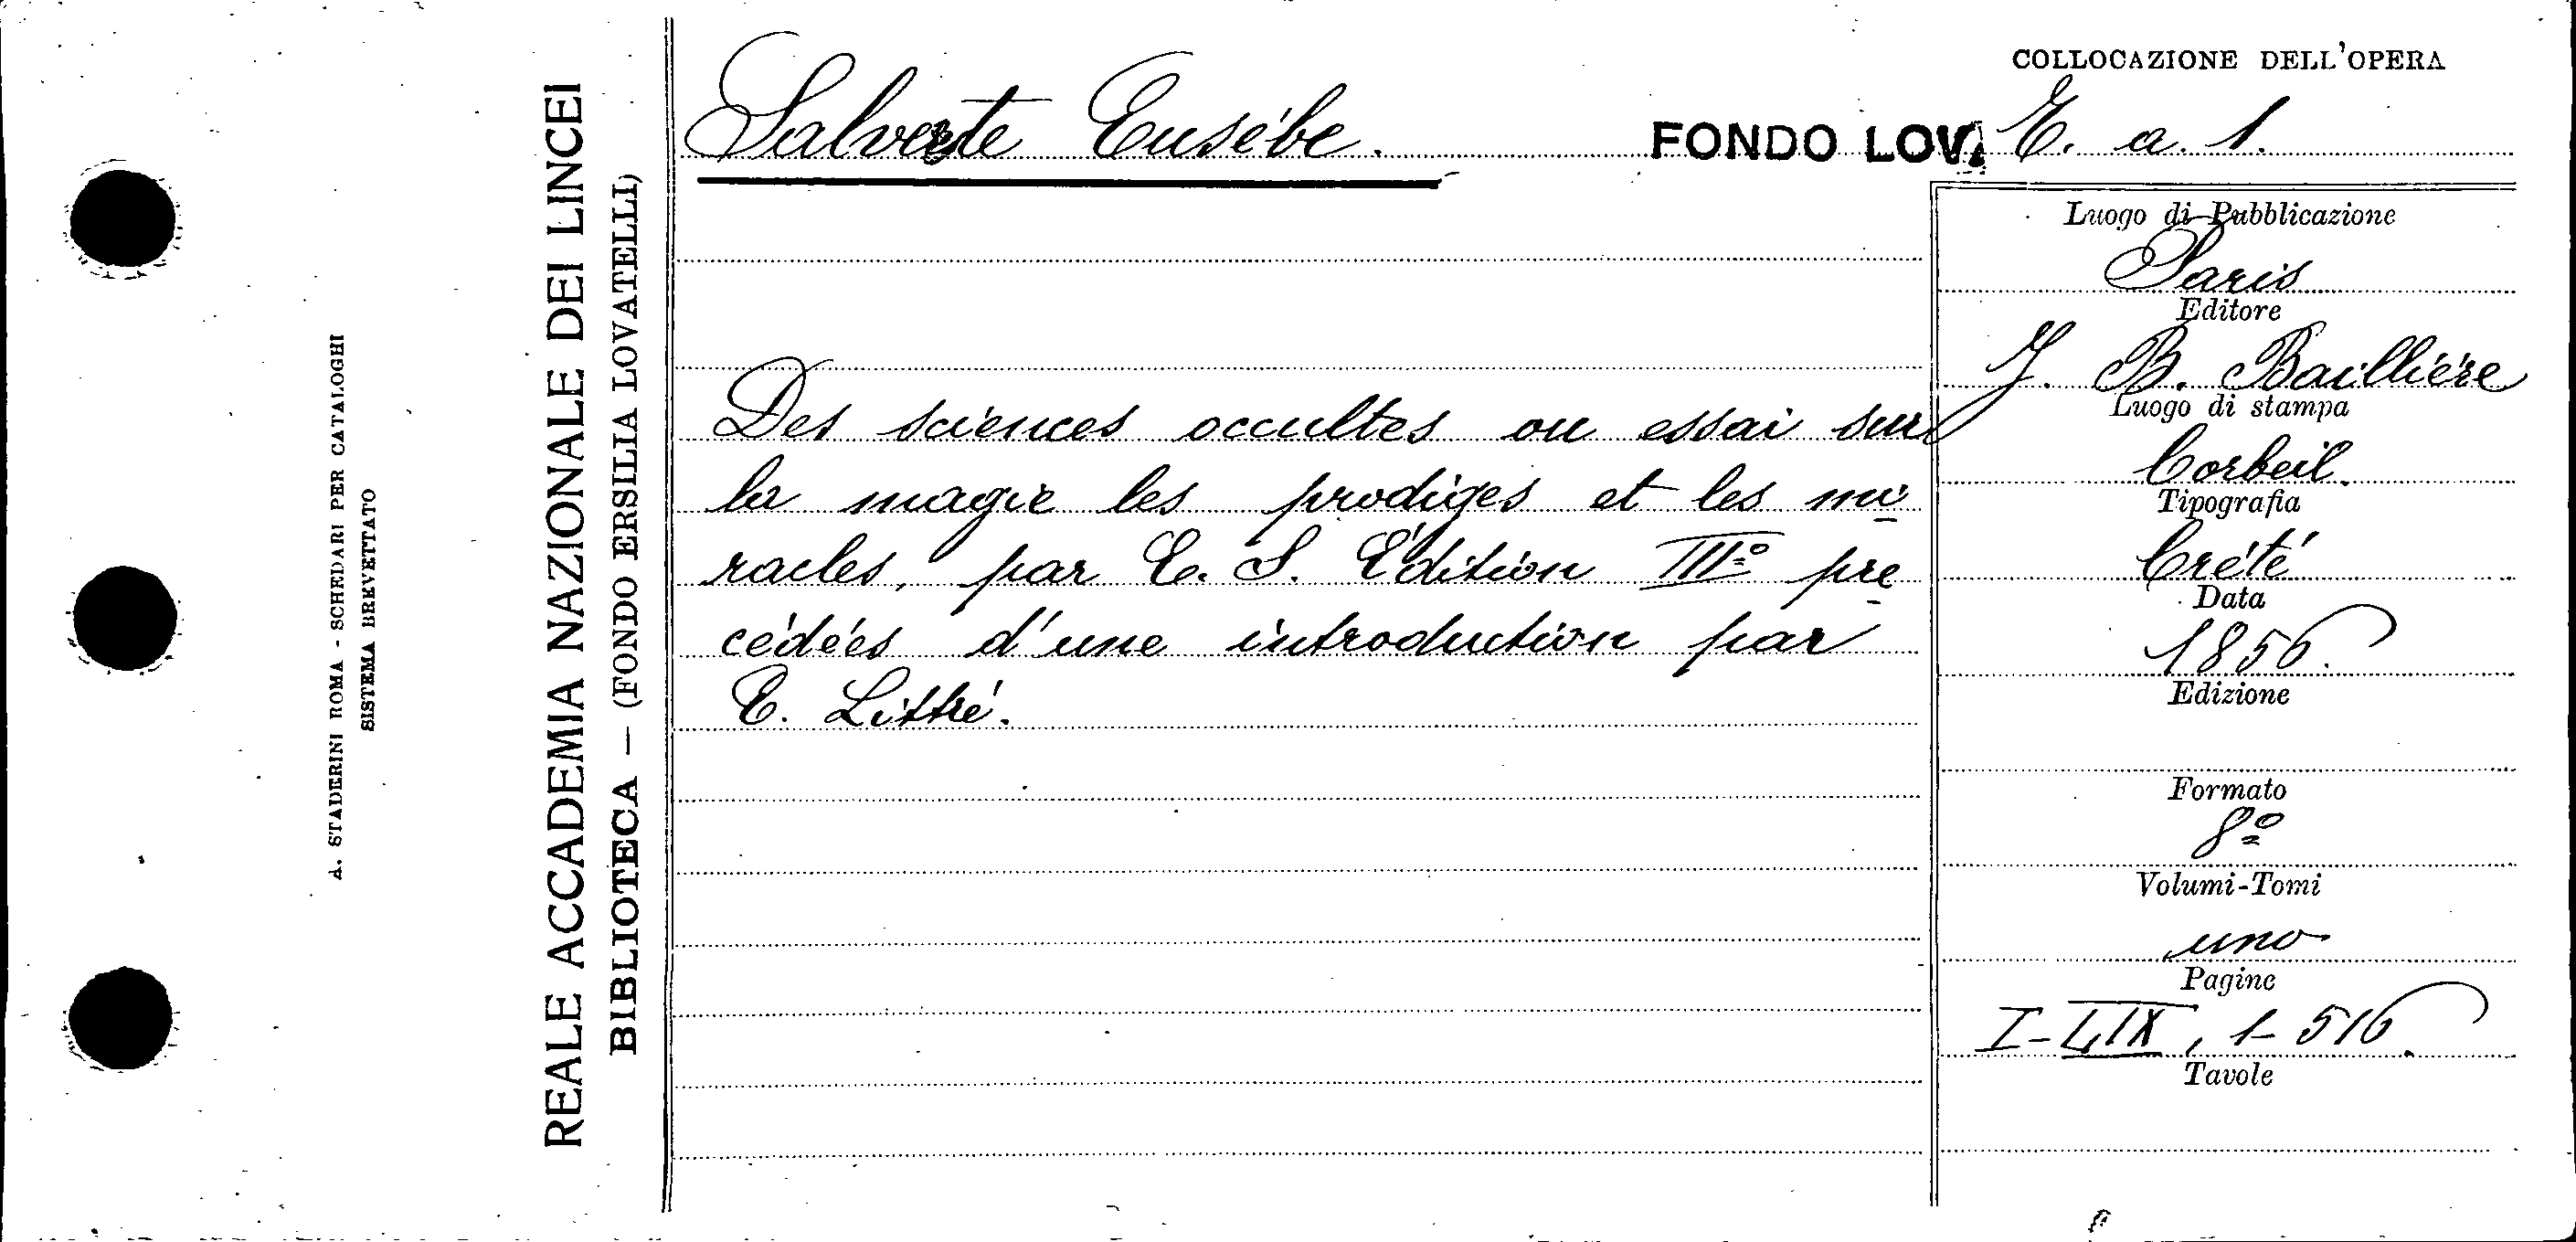 A. STADERINI ROMA - SCHEDARI PER CATALOGHI
SISTEMA BREVETTATO
REALE ACCADEMIA NAZIONALE DEI LINCEI
BIBLIOTECA — (FONDO ERSILIA LOVATELLI)
COLLOCAZIONE DELL'OPERA
Salverte Eusébe. FONDO LOVA E. a. 1.
Des sciences occultes ou essai sur
la magie les prodiges et les mi
racles, par E. S. Édition IIIº pre
cédées d'une introduction par
E. Littré.
Luogo di Pubblicazione
Paris
Editore
J. B. Bailliére
Luogo di stampa
Corbeil.
Tipografia
Crété
Data
1856.
Edizione
Formato
8º
Volumi-Tomi
uno
Pagine
I-LIX, 1-516.
Tavole